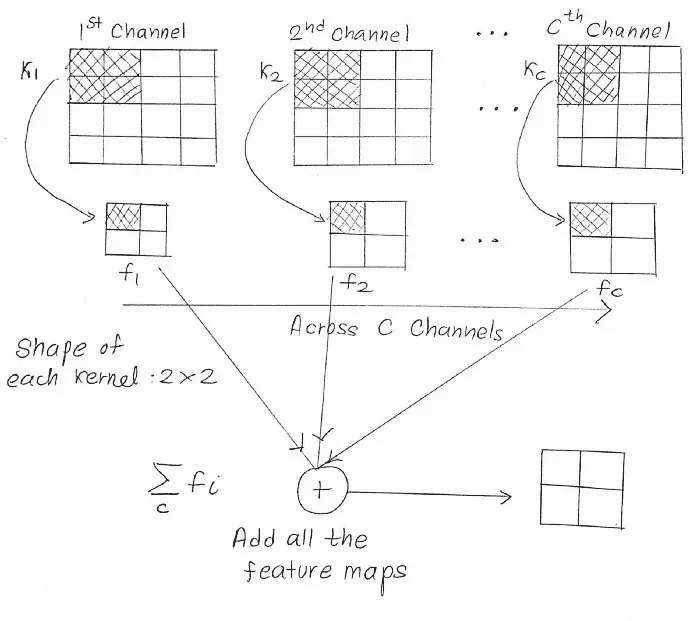 1st Channel 2nd Channel ... Cth Channel
K1 K2 ... Kc
...
f1 f2 fc
Across C Channels
Shape of
each kernel : 2×2
∑c fi +
Add all the
feature maps